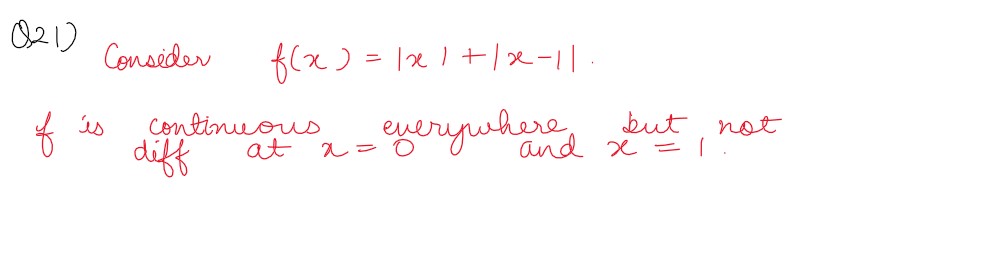 Q21)
Consider f(x) = |x| + |x-1|.
f is continuous everywhere but not
diff at x = 0 and x = 1.